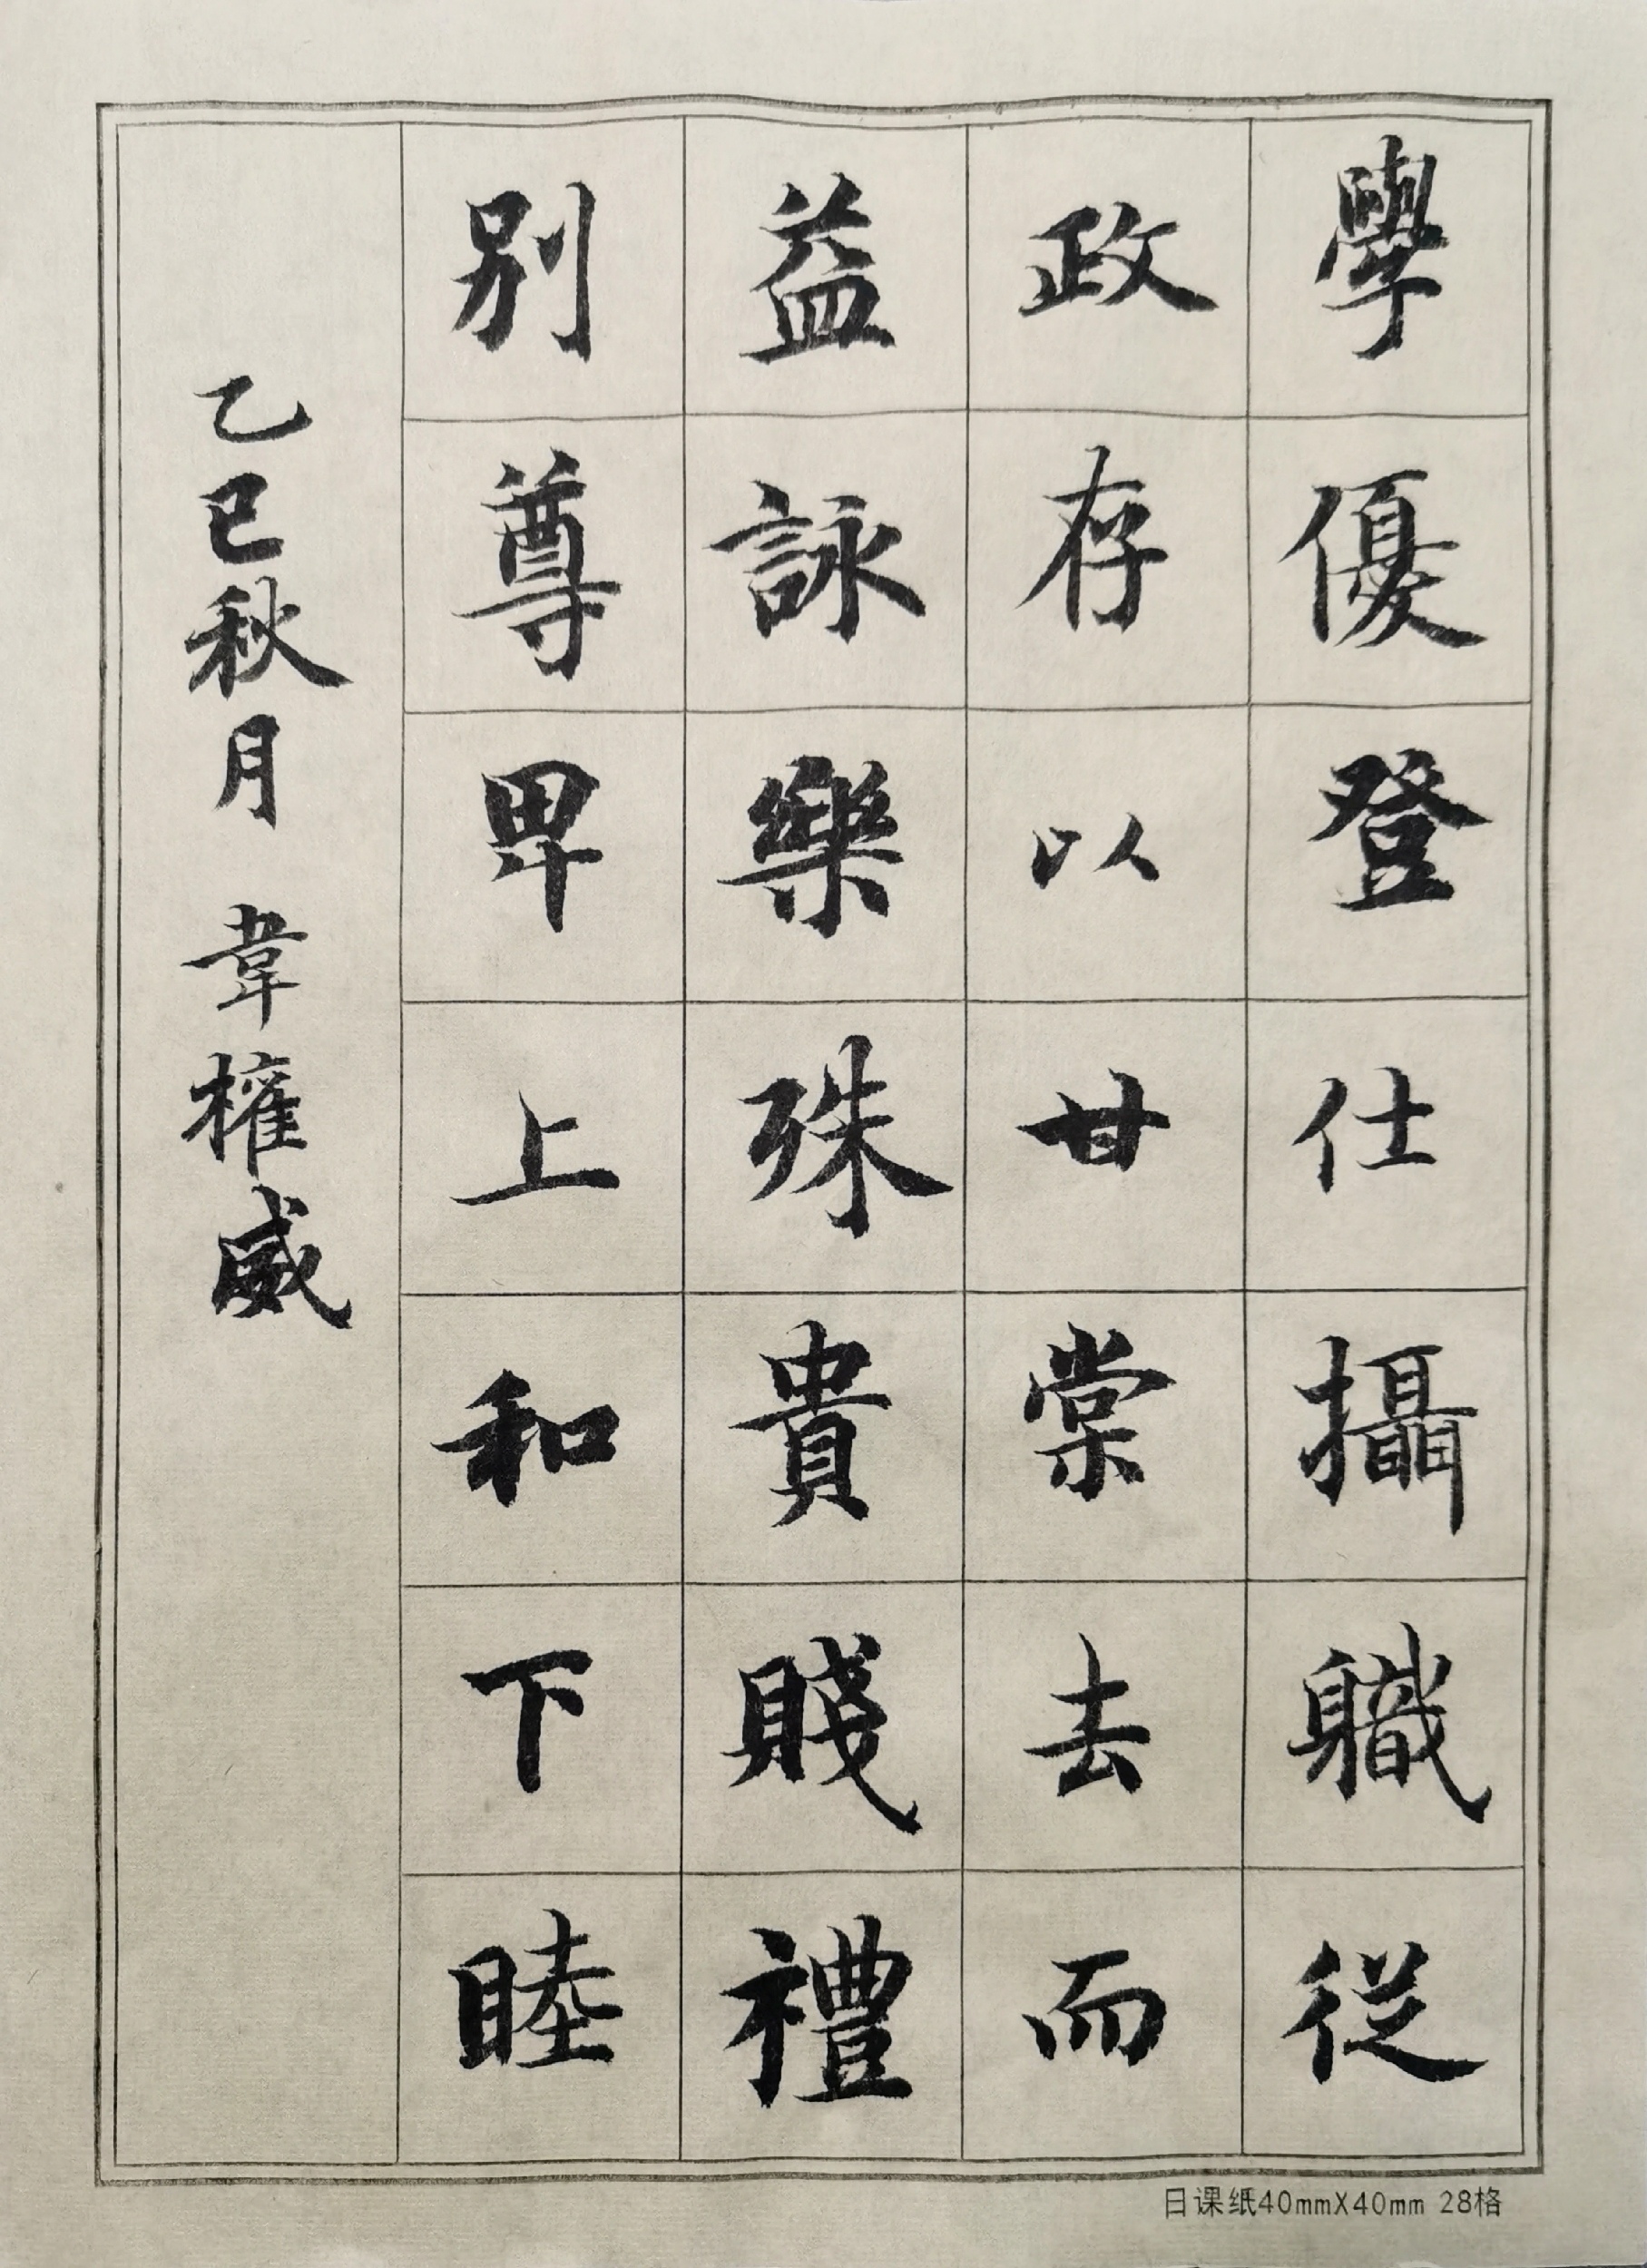 學優登仕攝職從
政存以甘棠去而
益詠樂殊貴賤禮
別尊卑上和下睦
乙巳秋月 韋權威
日课纸40mmX40mm 28格